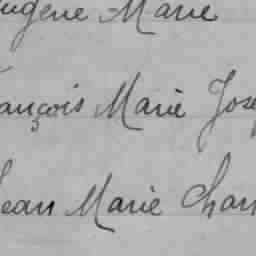 Eugène Marie
François Marie Jose
Jean Marie Char